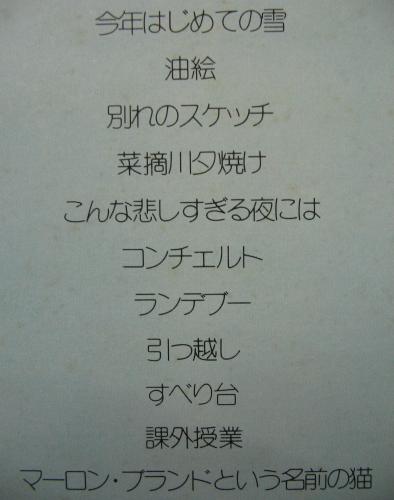 今年はじめての雪
油絵
別れのスケッチ
菜摘川夕焼け
こんな悲しすぎる夜には
コンチェルト
ランデブー
引っ越し
すべり台
課外授業
マーロン・ブランドという名前の猫